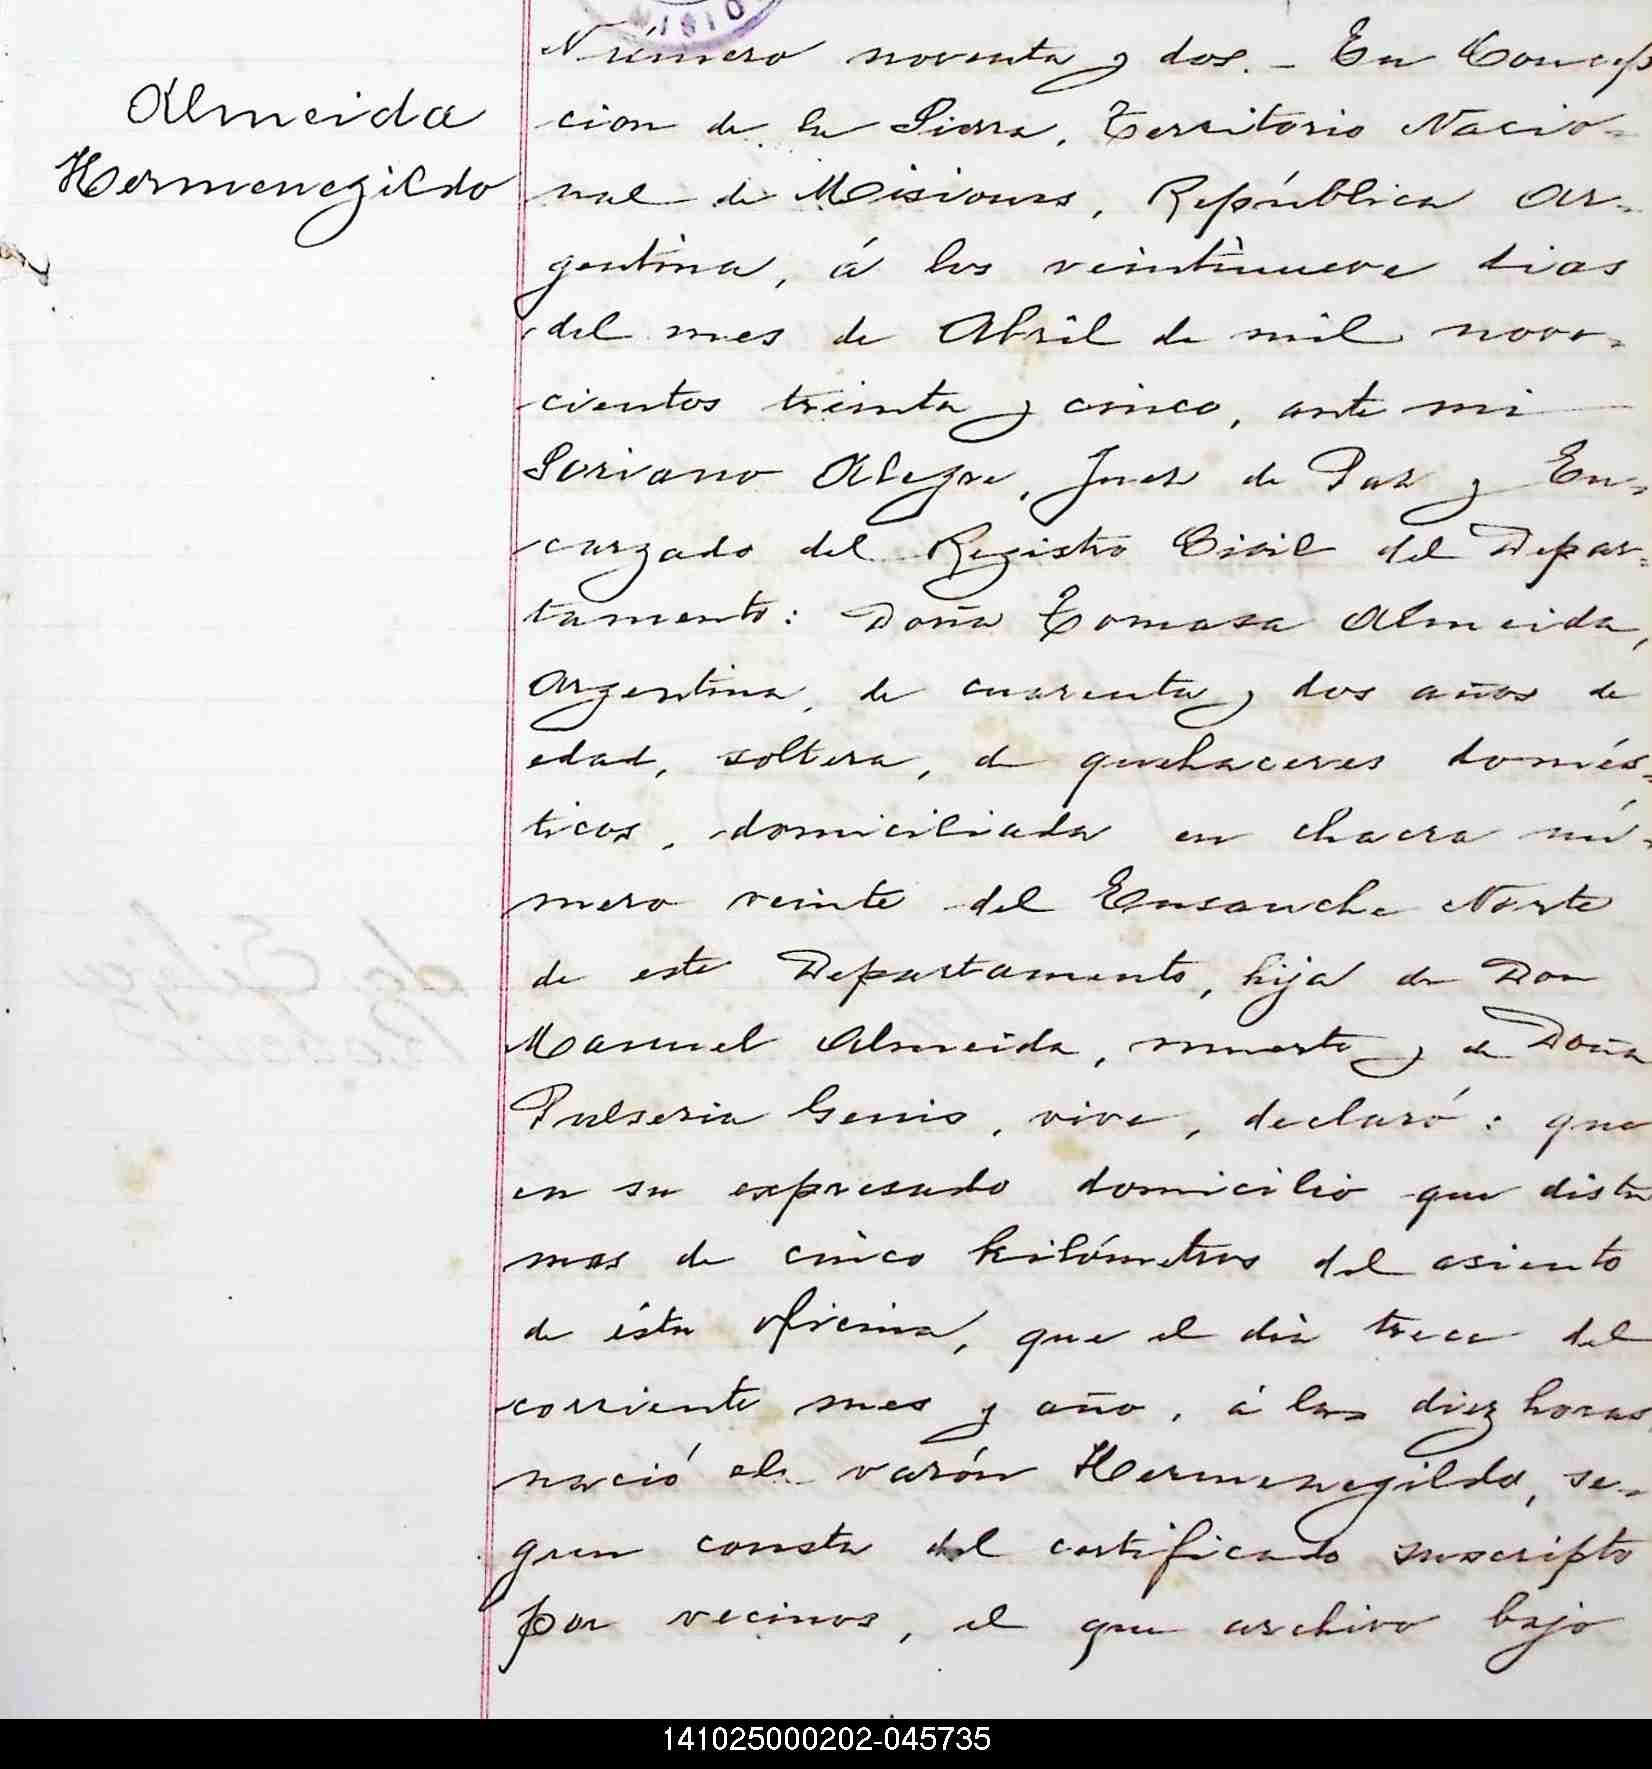 1910
Número noventa y dos. - En Concep
Almeida
Hermenegildo
cion de la Sierra, Territorio Nacio-
nal de Misiones, República Ar-
gentina, á los veintinueve dias
del mes de Abril de mil nove-
cientos treinta y cinco, ante mi
Soriano Alegre, Juez de Paz y En-
cargado del Registro Civil del Depar-
tamento: Doña Tomasa Almeida,
Argentina, de cuarenta y dos años de
edad, soltera, de quehaceres domés-
ticos, domiciliada en chacra nú-
mero veinte del Ensanche Norte
de este Departamento, hija de Don
Manuel Almeida, muerto y de Doña
Pulseria Genis, vive, declaró: que
en su expresado domicilio que dista
mas de cinco kilómetros del asiento
de ésta oficina, que el dia trece del
corriente mes y año, á las diez horas
nació el varón Hermenegildo, se-
gun consta del certificado suscripto
por vecinos, el que archivo bajo
141025000202-045735